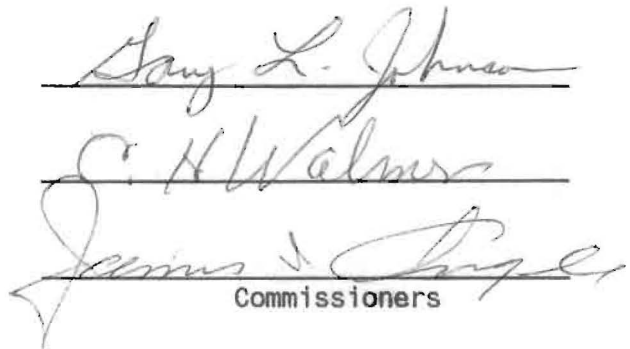 Gary L. Johnson
C. H Walmer
James
Commissioners